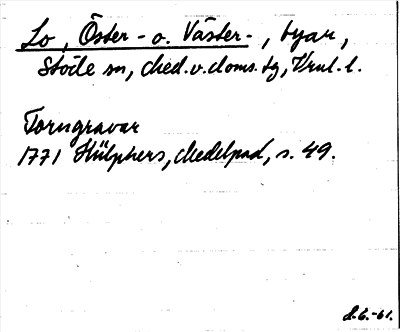 Lo, Öster- o. Väster-, byar,
Stöde sn, Med.v.doms. tg, Vrnl. l.
Forngravar
1771 Hülphers, Medelpad, s. 49.